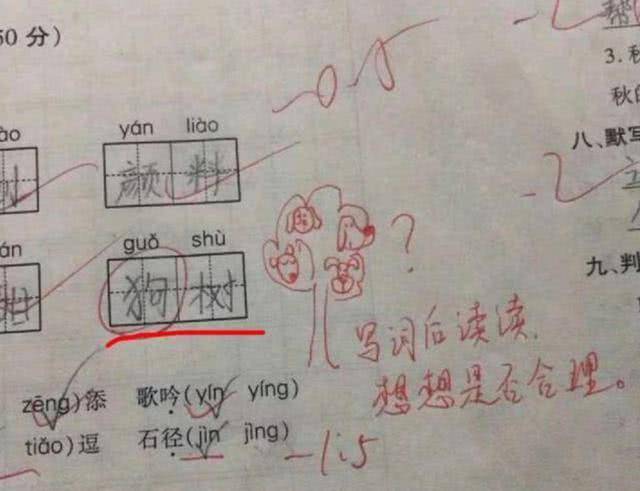 50 分)
-0.5
帮
3. 秋
秋的
ào
yán liào
颜料
八、默写
án
guǒ shù
狗树
?
九、判
写词后读读,
想想是否合理。
zēng)添 歌吟(yín yíng)
tiǎo)逗 石径(jìn jìng)
-1.5